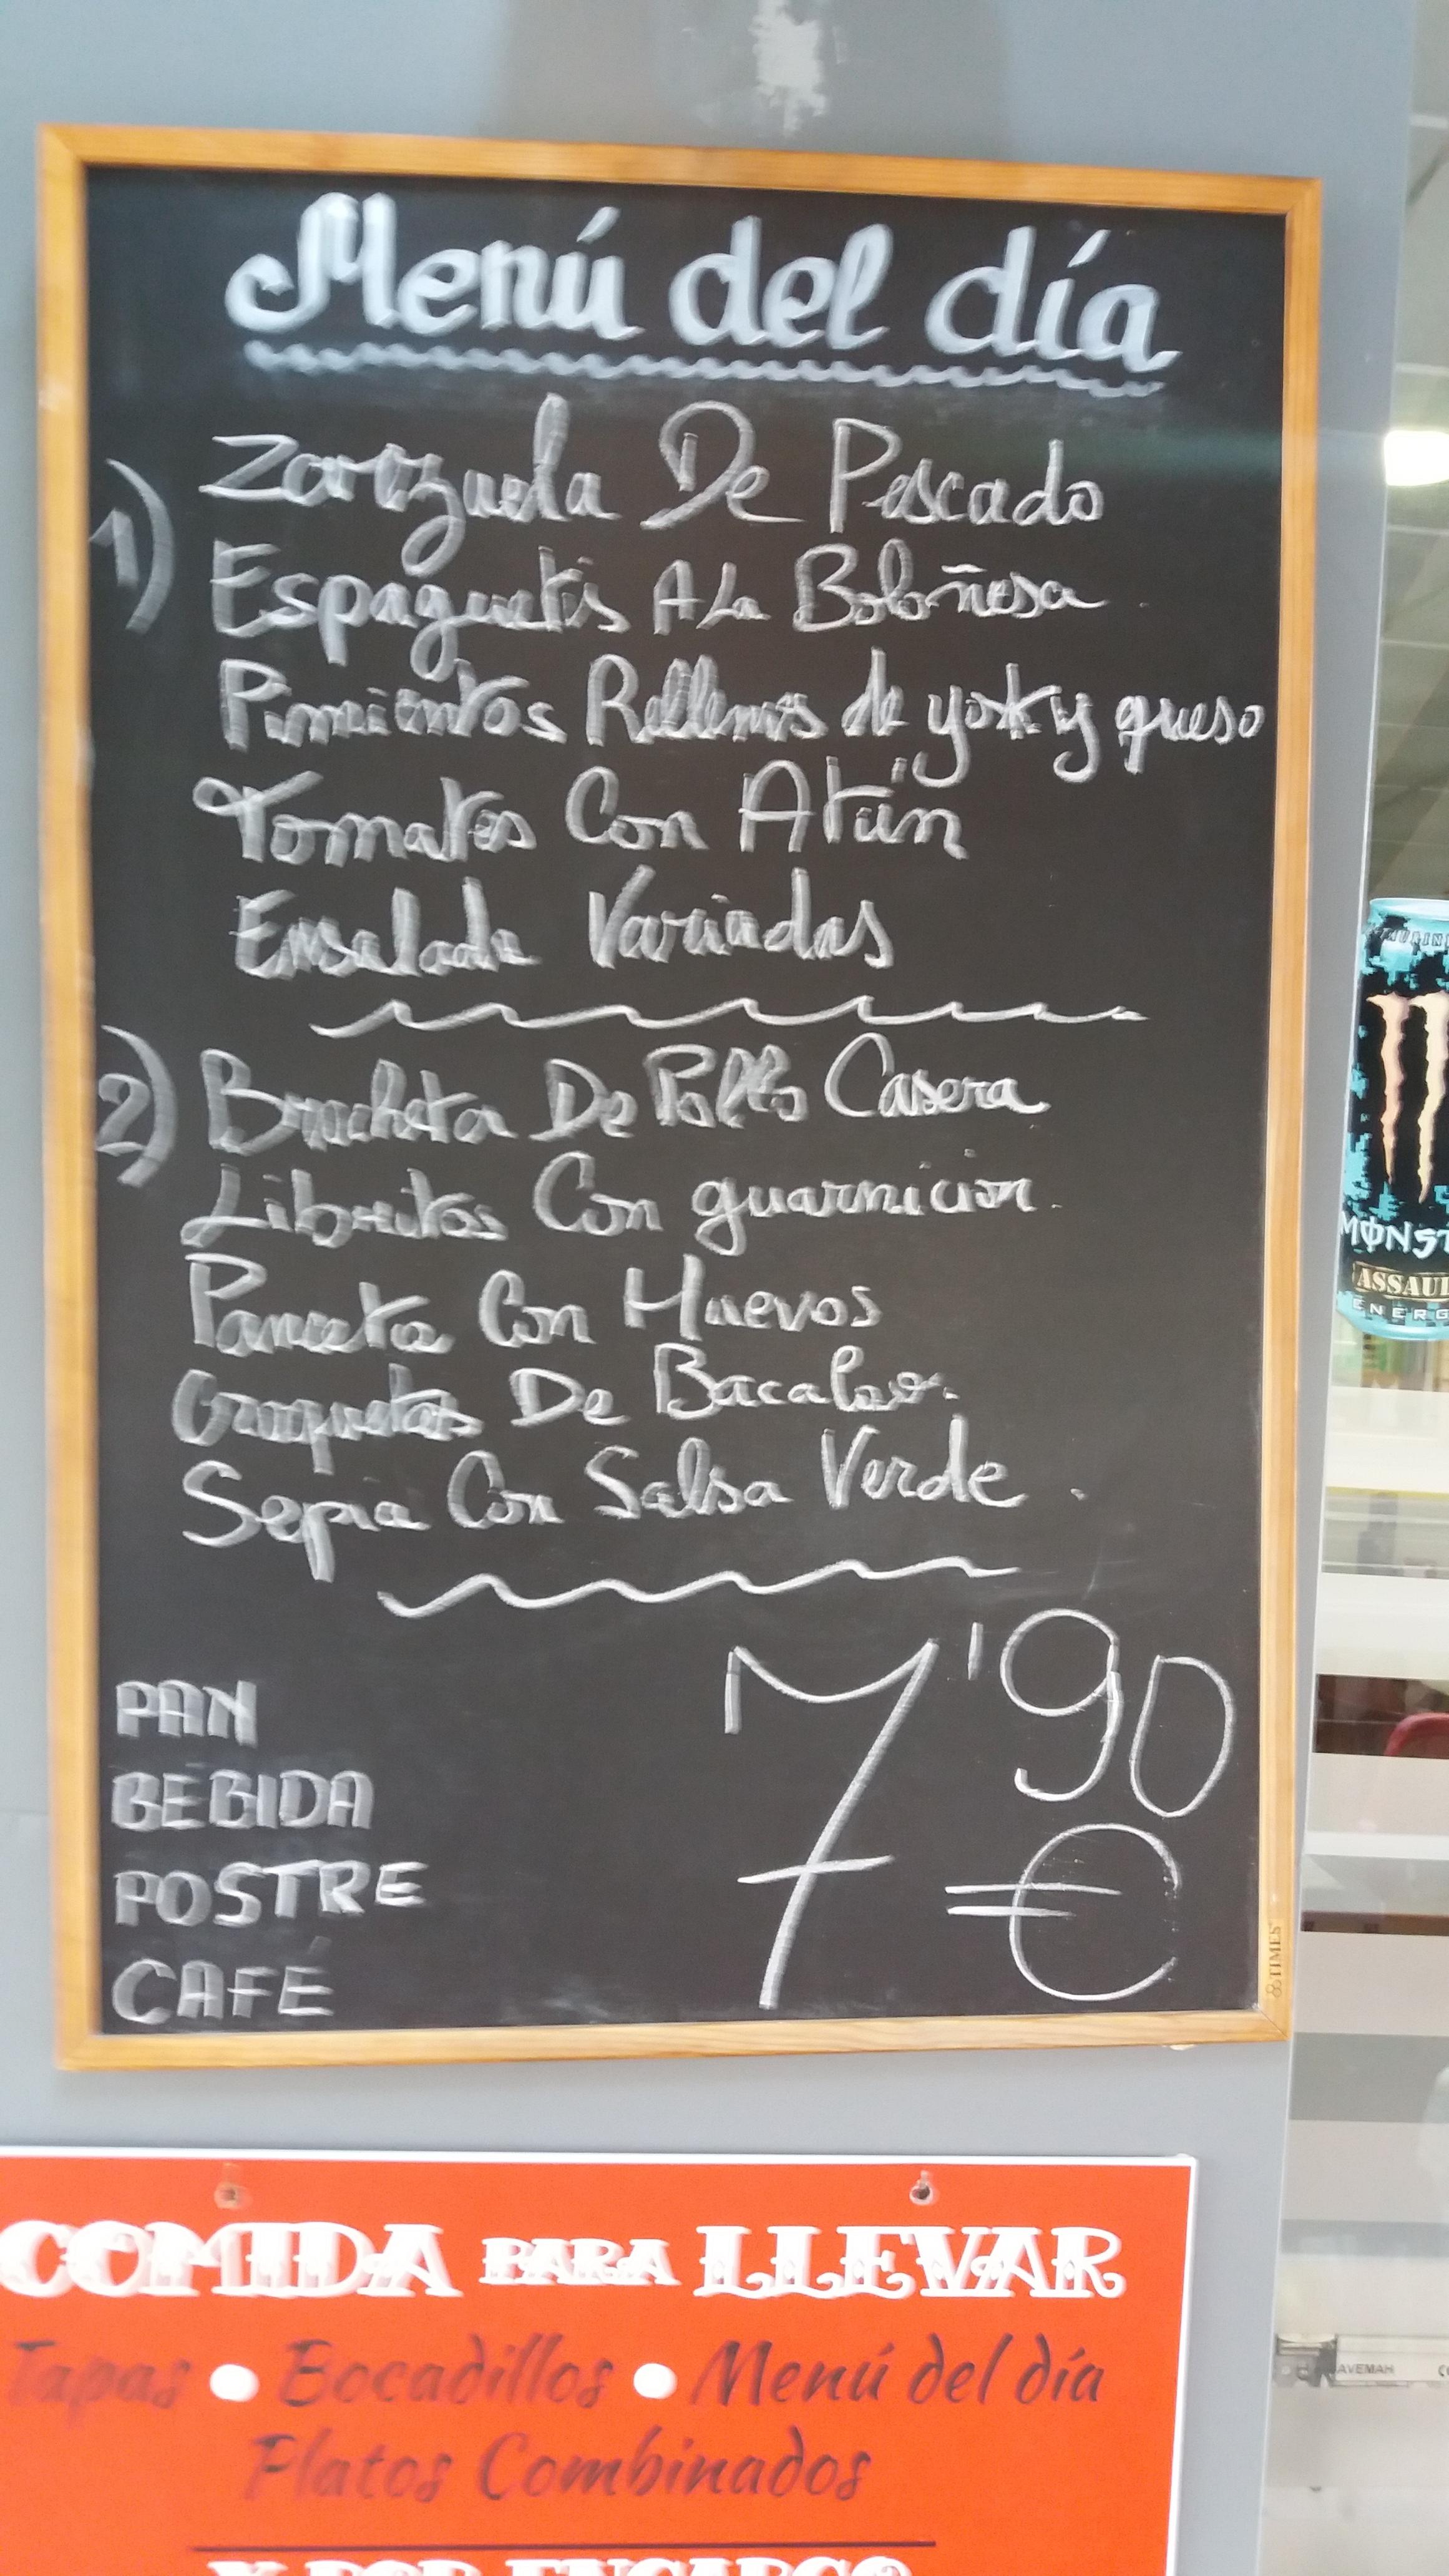 Menú del día
1) Zarzuela De Pescado
Espaguetis A La Boloñesa
Pimientos Rellenos de york y queso
Tomates Con Atún
Ensalada Variadas
2) Brocheta De Pollo Casera
Libritos Con guarnicion.
Panceta Con Huevos
Croquetas De Bacalao.
Sepia Con Salsa Verde.
PAN
BEBIDA
POSTRE
CAFÉ
7'90
€
&TIMES
MONST
ASSAUL
ENERG
COMIDA PARA LLEVAR
Tapas • Bocadillos • Menú del día
Platos Combinados
Y POR ENCARGO
AVEMAH